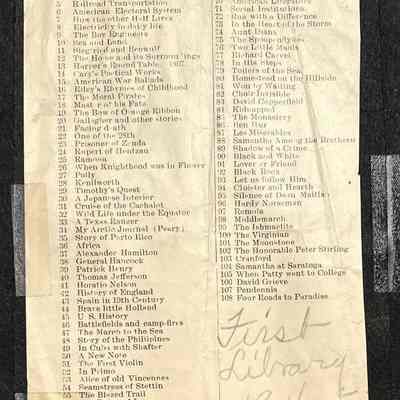 5 Railroad Transportation
6 American Electoral System
7 How the other Half Lives
8 Electricity in daily life
9 The Boy Engineers
10 Sea and Land
11 Siegfried and Beowulf
12 The House and its Surroundings
13 Harper's Round Table. 1897
14 Cary's Poetical Works
15 American War Ballads
16 Riley's Rhymes of Childhood
17 The Moral Pirates
18 Master of his Fate
19 The Bow of Orange Ribbon
20 Gallagher and other stories
21 Facing death
22 One of the 28th
23 Prisoner of Zenda
24 Rupert of Hentzau
25 Ramona
26 When Knighthood was in Flower
27 Polly
28 Kenilworth
29 Timothy's Quest
30 A Japanese Interior
31 Cruise of the Cachalot
32 Wild Life under the Equator
33 A Texas Ranger
34 My Arctic Journal (Peary)
35 Story of Porto Rico
36 Africa
37 Alexander Hamilton
38 General Hancock
39 Patrick Henry
40 Thomas Jefferson
41 Horatio Nelson
42 History of England
43 Spain in 19th Century
44 Brave little Holland
45 U. S. History
46 Battlefields and camp-fires
47 The March to the Sea
48 Story of the Philipines
49 In Cuba with Shafter
50 A New Note
51 The First Violin
52 In Primo
53 Alice of old Vincennes
54 Seamstress of Stettin
55 The Blazed Trail
70 American Literature
71 Social Institutions
72 Man with a Difference
73 In the Heart of the Storm
74 Aunt Diana
75
76 Two Little Maids
77 Richard Carvel
78 In His Steps
79 Toilers of the Sea
80 Homestead on the Hillside
81 Won by Waiting
82 Choir Invisible
83 David Copperfield
84 Kidnapped
85 The Monastery
86 Ben Hur
87 Les Miserables
88 Samantha Among the Brethern
89 Shadow of a Crime
90 Black and White
91 Lover or Friend
92 Black Rock
93 Let us Follow Him
94 Cloister and Hearth
95 Silence of Dean Maitland
96 Hardy Norseman
97 Romola
98 Middlemarch
99 The Ishmaelite
100 The Virginian
101 The Moonstone
102 The Honorable Peter Stirling
103 Cranford
104 Samantha at Saratoga
105 When Patty went to College
106 David Grieve
107 Pendennis
108 Four Roads to Paradise
First
Library